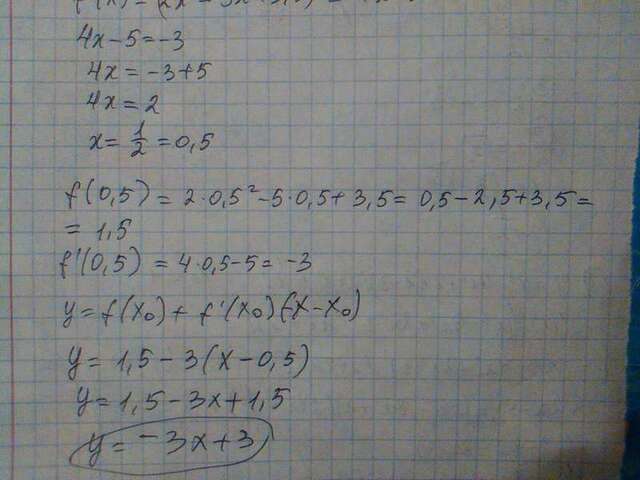 4x-5=-3
4x=-3+5
4x=2
x=1/2=0,5
f(0,5)=2·0,5²-5·0,5+3,5=0,5-2,5+3,5=
=1,5
f'(0,5)=4·0,5-5=-3
y=f(x₀)+f'(x₀)(x-x₀)
y=1,5-3(x-0,5)
y=1,5-3x+1,5
y=-3x+3